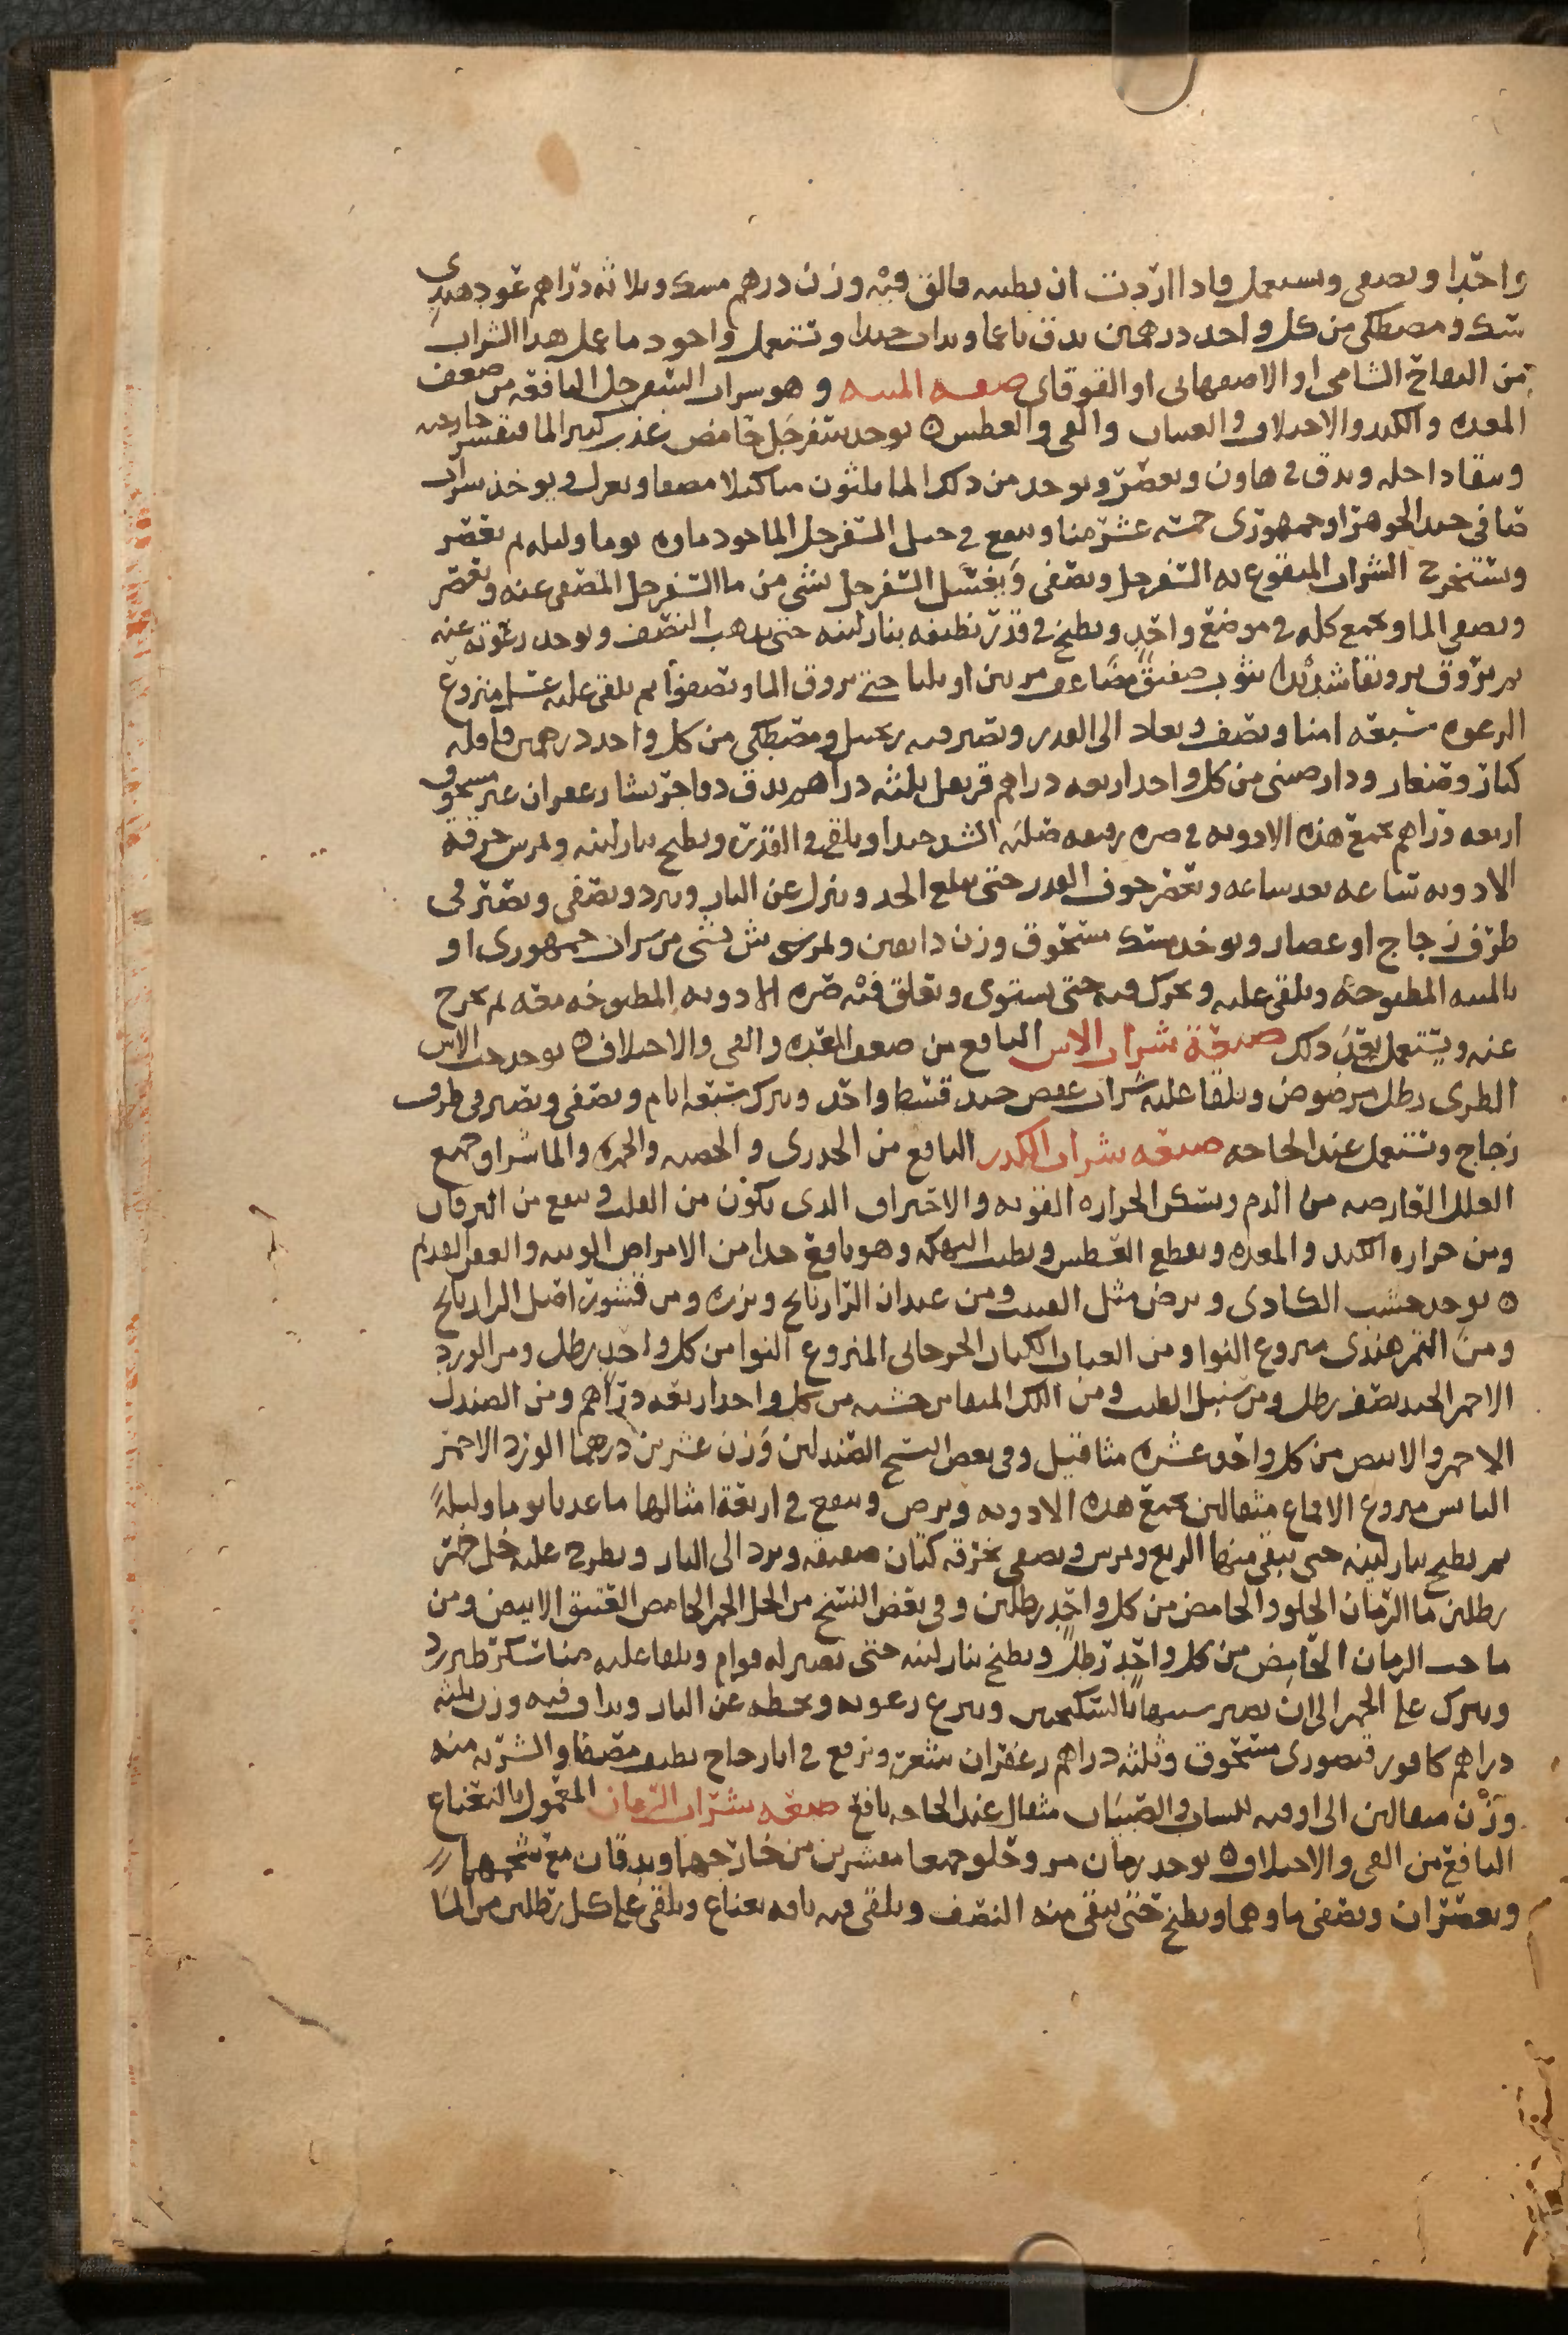 واحدا ويصفى ويستعمل واذا اردت ان تطيبه فالق فيه وزن درهم مسك وثلاثه دراهم عود هندى
سك ومصطكى من كل واحد درهمين يدق ناعما ويداف جيدا وتستعمل واجود ما عمل هذا الشراب
من التفاح الشامى او الاصفهانى او القوقاى صفه الميبه وهو شراب السفرجل النافعه من ضعف
المعده والكبد والاختلاف والغثيان والقى والعطش ه يوخذ سفرجل حامض عذب كثير الما فيقشر خارجه
وينقا داخله ويدق فى هاون ويعصر ويوخذ من ذلك الما ثلثون منا كيلا مصفا ويعزل ويوخذ شراب
صافى جيد الجوهر او جمهورى خمسه عشر منا وينقع فى السفرجل الماخوذ ماوه يوما وليله ثم يعصر
ويستخرج الشراب المنقوع به السفرجل ويصفى ويغسل السفرجل بشى من ما السفرجل المصفى عنه ويعصر
ويصفى الما ويجمع كله فى موضع واحد ويطبخ فى قدر نظيفه بنار لينه حتى يذهب النصف ويوخذ رغوته عنه
ثم يروق ترويقا شديدا بثوب صفيق مضاعف مرتين او ثلثا حتى يروق الما ويصفوا ثم يلقى عليه عسل منزوع
الرغوه سبعه امنا ونصف ويعاد الى القدر ويصير فيه زنجبيل ومصطكى من كل واحد درهمين قاقله
كبار وصغار ودارصينى من كل واحد اربعه دراهم قرنفل ثلثه دراهم يدق زعفران غير مسحوق
اربعه دراهم تجمع هذه الادويه فى صره الشد جيدا ويلقى فى القدر ويطبخ بنار لينه ويمرس خرقة
الادويه ساعه بعد ساعه وتعصر جوف القدر حتى يبلغ الحد وينزل عن النار ويبرد ويصفى ويصير فى
ظرف زجاج او غضار ويوخذ مسك مسحوق وزن دانقين بشى من شراب جمهورى او
بالميبه المطبوخه ويلقى عليه ويحرك فيه حتى يستوى ويعلق فيه صره الادويه المطبوخه معه ثم تخرج
عنه ويستعمل بعد ذلك صفة شراب الاس النافع من ضعف المعده والقى والاختلاف ه يوخذ حب الاس
الطرى رطل مرضوض ويلقا عليه شراب عفص جيد قسط واحد ويترك سبعه ايام ويصفى ويصير فى ظرف
زجاج وتستعمل عند الحاجه صفه شراب الكدر النافع من الجدرى والحصبه والحمره والماشرا وجميع
العلل العارضه من الدم ويسكن الحراره القويه والاحتراق الذى يكون من القلب وينفع من اليرقان
ومن حراره الكبد والمعده ويقطع العطش ويطيب النهكه وهو نافع جدا من الامراض الوبيه والعفن القديم
ه يوخذ خشب الكادى ويرض مثل العبيب ومن عيدان الرازيانج وبزره ومن قشور اصل الرازيانج
ومن التمر هندى منزوع النوا ومن العناب الكبار الجرجانى المنزوع النوا من كل واحد رطل ومن الورد
الاحمر الجيد نصف رطل ومن سنبل الطيب ومن اللك المنقا من خشبه من كل واحد اربعه دراهم ومن الصندل
الاحمر والابيض من كل واحد عشره مثاقيل وفى بعض النسخ الصندلين وزن عشرين درهما الورد الاحمر
اليابس منزوع الاقماع مثقالين تجمع هذه الادويه وترض وينقع فى اربعة امثالها ما عذبا يوما وليلة
ثم يطبخ بنار لينه حتى يبقى منها الربع ويمرس ويصفى بخرقه كتان صفيقه ويرد الى النار ويطرح عليه خل خمر
رطلين ما الرمان الحلو والحامض من كل واحد رطلين وفى بعض النسخ من الخل الخمر الحامض العتيق الابيض ومن
ما حب الرمان الحامض من كل واحد رطل ويطبخ بنار لينه حتى يصير له قوام ويلقا عليه منا سكر طبرزد
ويترك على الجمر الى ان يصير شبيها بالسكنجبين وينزع رغوته ويحطه عن النار ويداف فيه وزن ثلثه
دراهم كافور قيصورى مسحوق وثلثه دراهم زعفران شعره ويرفع فى انا زجاج نظيف مصفا والشربه منه
وزن مثقالين الى اوقيه للنسا والصبيان مثقال عند الحاجه نافع صفه شراب الرمان المعمول بالنعناع
النافع من القى والاختلاف ه يوخذ رمان مز وحلو جميعا مقشرين من خارجهما ويدقان مع شحمهما
ويعصران ويصفى ماوهما ويطبخ حتى يبقى منه النصف ويلقى فيه باقه نعناع ويلقى على كل رطلين من الما